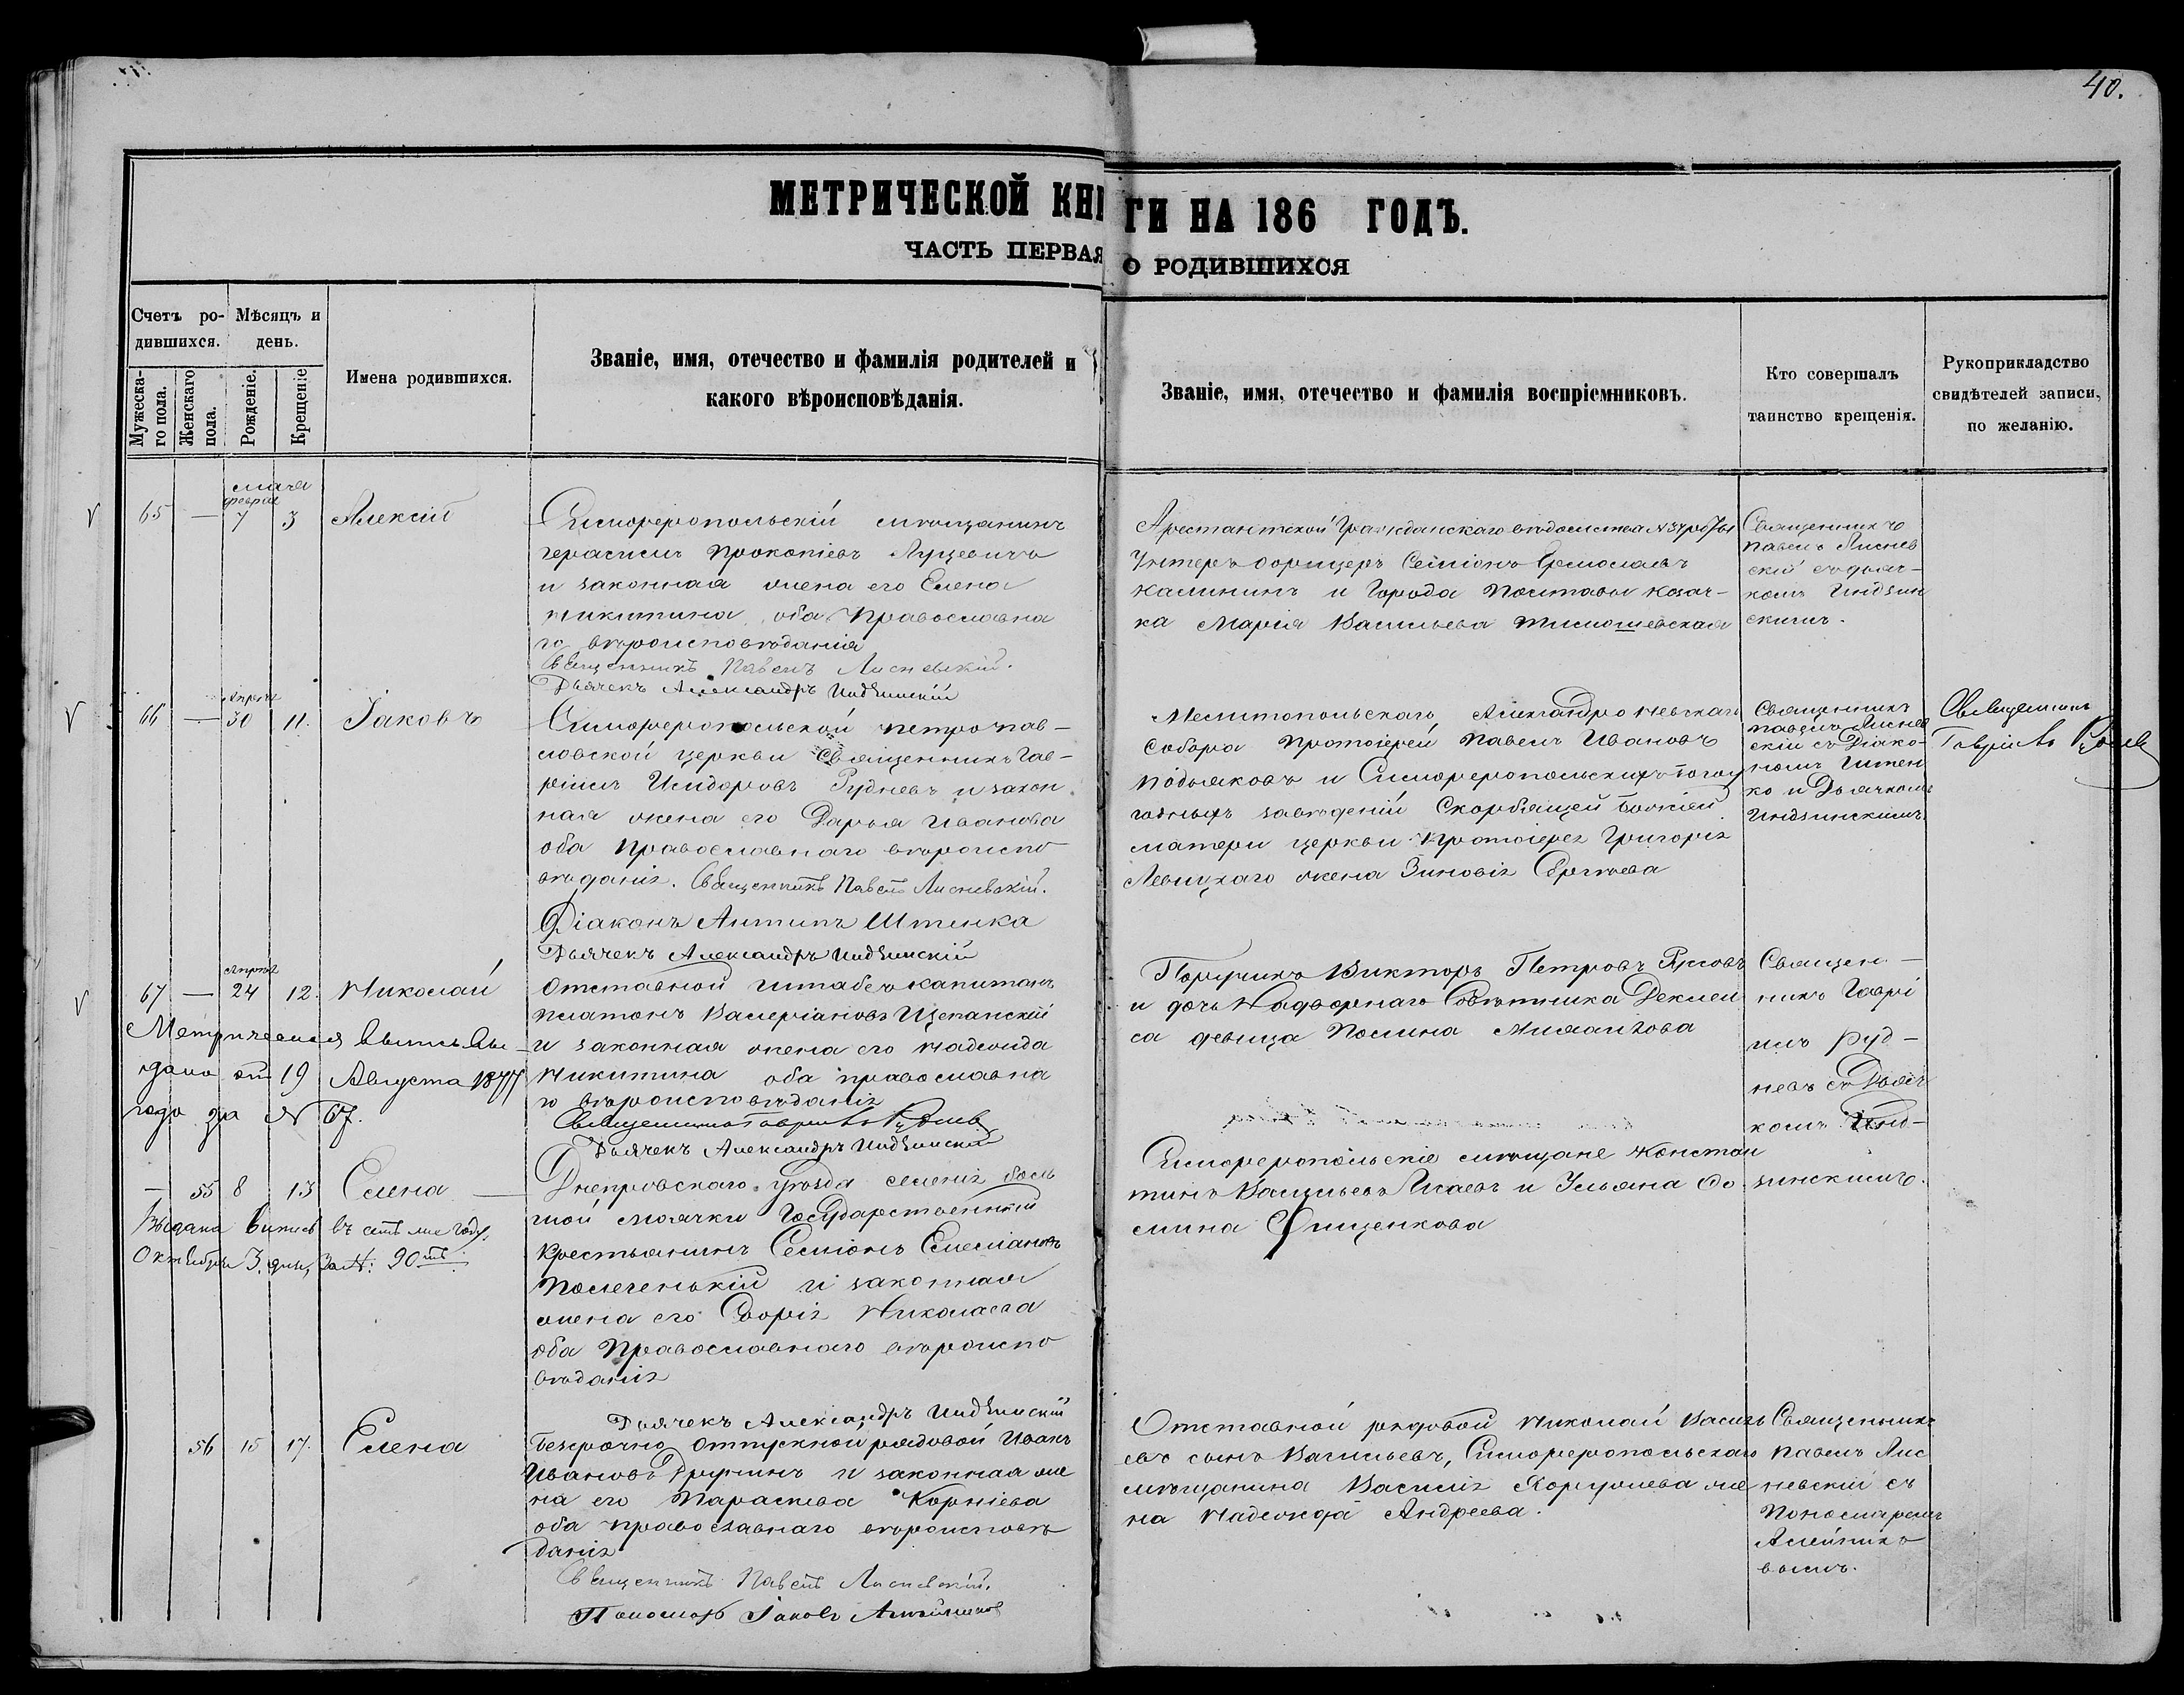 40.
МЕТРИЧЕСКОЙ КНИГИ НА 186 ГОДЪ.
ЧАСТЬ ПЕРВАЯ О РОДИВШИХСЯ
Счетъ родившихся.
Мужескаго пола.
Женскаго пола.
Мѣсяцъ и день.
Рожденіе.
Крещеніе
Имена родившихся.
Званіе, имя, отечество и фамилія родителей и
какого вѣроисповѣданія.
Званіе, имя, отечество и фамилія воспріемниковъ.
Кто совершалъ
таинство крещенія.
Рукоприкладство
свидѣтелей записи,
по желанію.
65 — 7 3 Алексій
Симферопольскій мѣщанинъ
Герасимъ Прокопіевъ Луцевичъ
и законная жена его Елена
Никитина, оба Православна
го вѣроисповѣданія
Священникъ Павелъ Лисневскій.
Дьячекъ Александръ Индзинскій
Унтеръ офицеръ Семіонъ
Калининъ и Города Полтавы казач-
ка Марія Васильева
Священникъ
Павелъ Лиснев
скій съ дьяч-
комъ Индзин
скимъ.
66 — 30 11. Іаковъ
Симферопольской Петропав-
ловской церкви Священникъ Гав-
ріилъ Исидоровъ Рудневъ и закон
ная жена его Дарья Иванова
оба Православнаго вѣроиспо
вѣданія. Священникъ Павелъ Лисневскій.
Діаконъ Антипъ Штенка
Дьячекъ Александръ Индзинскій
Мелитопольскаго Александро Невскаго
Собора Протоіерей Павелъ Ивановъ
Подьяковъ и Симферопольскихъ Богоу
годныхъ заведеній Скорбящей Божіей
матери церкви Протоіерея Григорія
Левицкаго жена Зиновія Сергѣева
Священникъ
Павелъ Лиснев
скій съ Діако-
номъ Штен
ко и Дьячкомъ
Индзинскимъ
Священникъ
Гавріилъ Рудневъ
апрѣля
67 — 24 12. Николай
Метрическая выпись вы-
дана от 19 Августа 1877
года за № 67.
Отставной штабсъ капитанъ
Платонъ Валеріановъ Щепанскій
и законная жена его Надежда
Никитина оба православна
го вѣроисповѣданія
Священникъ Гавріилъ Рудневъ
Дьячекъ Александръ Индзинскій
Поручикъ Викторъ Петровъ
и дочь Надворнаго Совѣтника
са девица Полина
Священ-
никъ Гаврі
илъ Руд-
невъ съ Дьяч
комъ Инд-
зинскимъ.
— 55 8 13 Елена
Выдана выпись
Октября 3. дня, За №: 90
Днепровскаго уѣзда селенія боль
шой Маячки Государственный
крестьянинъ Семіонъ Емеліановъ
и законная
жена его Николаева
оба Православнаго вѣроиспо
вѣданія
Дьячекъ Александръ Индзинскій
Симферопольскіе мѣщане Констан
тинъ Васильевъ Исаевъ и Ульяна Фо
мина Онищенкова
56 15 17. Елена
Безсрочно отпускной рядовой Иванъ
Ивановъ и законная же
на его Параскева Корніева
оба православнаго вѣроисповѣ
данія
Священникъ Павелъ Лисневскій.
Пономарь Іаковъ Алейников
Отставной рядовой Николай Василь
евъ сынъ Васильевъ, Симферопольскаго
мѣщанина Василія же
на Надежда Андреева.
Священникъ
Павелъ Лис
невскій съ
Пономаремъ
Алейнико
вымъ.